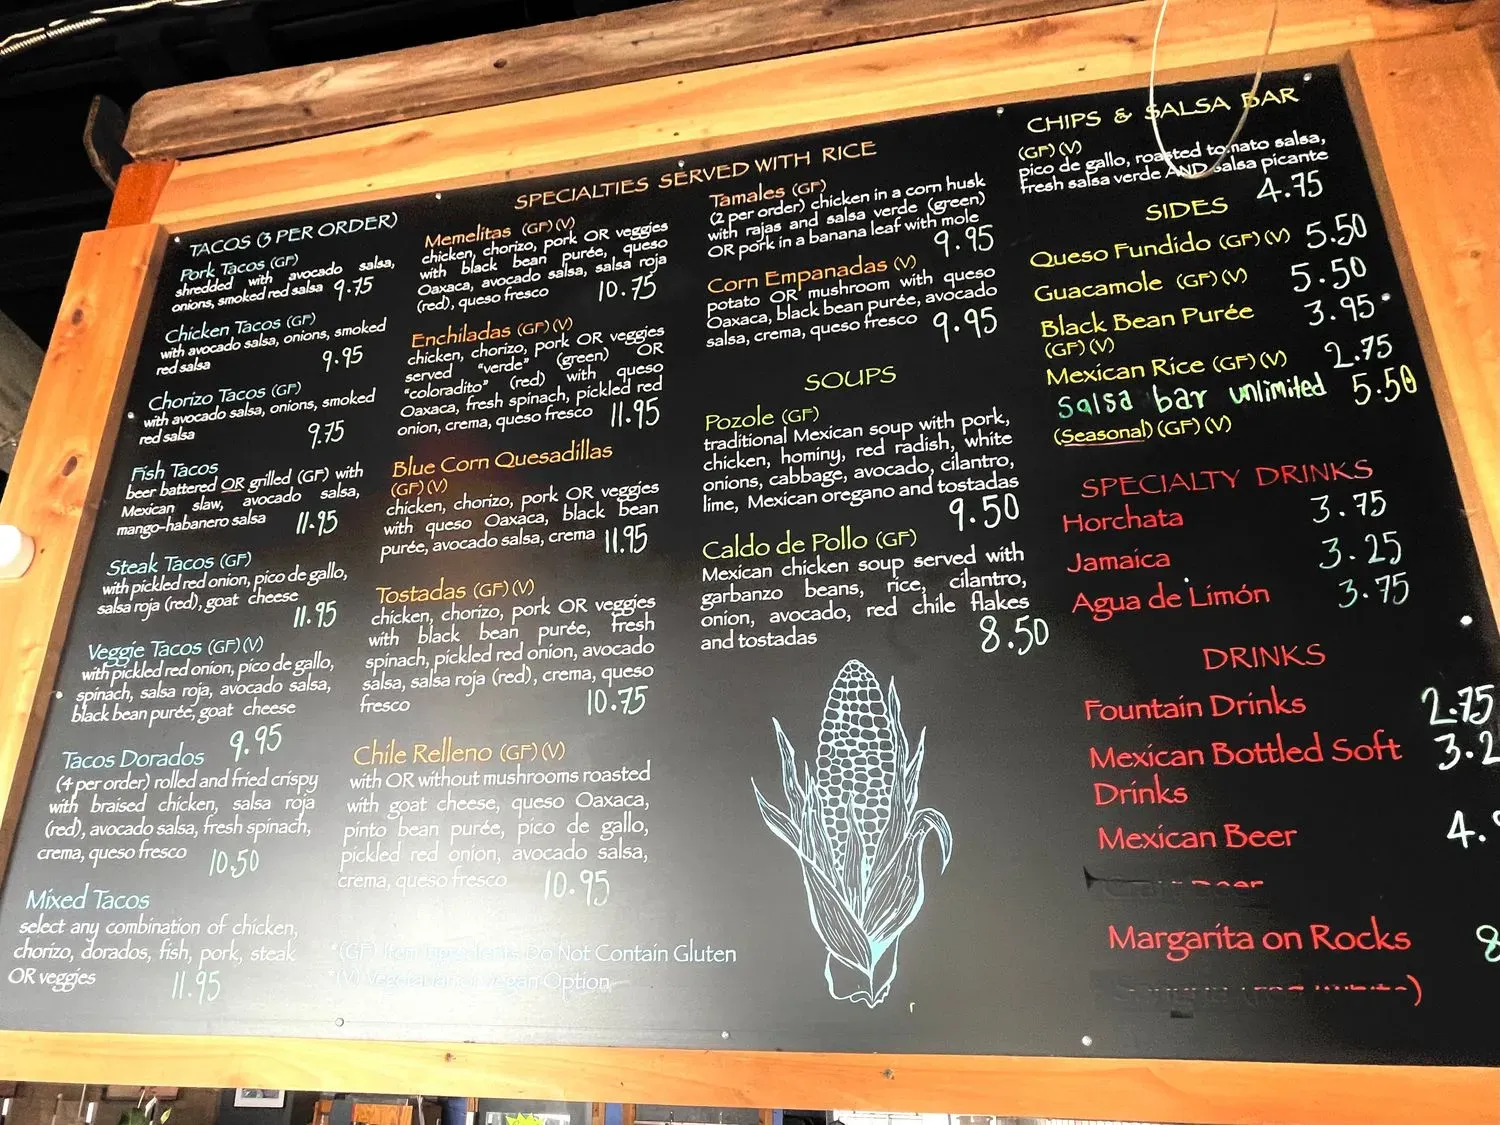 TACOS (3 PER ORDER)
Pork Tacos (GF)
shredded with avocado salsa,
onions, smoked red salsa 9.75
Chicken Tacos (GF)
with avocado salsa, onions, smoked
red salsa 9.95
Chorizo Tacos (GF)
with avocado salsa, onions, smoked
red salsa 9.75
Fish Tacos
beer battered OR grilled (GF) with
Mexican slaw, avocado salsa,
mango-habanero salsa 11.95
Steak Tacos (GF)
with pickled red onion, pico de gallo,
salsa roja (red), goat cheese
11.95
Veggie Tacos (GF)(V)
with pickled red onion, pico de gallo,
spinach, salsa roja, avocado salsa,
black bean purée, goat cheese
9.95
Tacos Dorados
(4 per order) rolled and fried crispy
with braised chicken, salsa roja
(red), avocado salsa, fresh spinach,
crema, queso fresco 10.50
Mixed Tacos
select any combination of chicken,
chorizo, dorados, fish, pork, steak
OR veggies 11.95
SPECIALTIES SERVED WITH RICE
Memelitas (GF)(V)
chicken, chorizo, pork OR veggies
with black bean purée, queso
Oaxaca, avocado salsa, salsa roja
(red), queso fresco 10.75
Enchiladas (GF)(V)
chicken, chorizo, pork OR veggies
served "verde" (green) OR
"coloradito" (red) with queso
Oaxaca, fresh spinach, pickled red
onion, crema, queso fresco 11.95
Blue Corn Quesadillas
(GF)(V)
chicken, chorizo, pork OR veggies
with queso Oaxaca, black bean
purée, avocado salsa, crema 11.95
Tostadas (GF)(V)
chicken, chorizo, pork OR veggies
with black bean purée, fresh
spinach, pickled red onion, avocado
salsa, salsa roja (red), crema, queso
fresco 10.75
Chile Relleno (GF)(V)
with OR without mushrooms roasted
with goat cheese, queso Oaxaca,
pinto bean purée, pico de gallo,
pickled red onion, avocado salsa,
crema, queso fresco 10.95
*(GF) Item Ingredients Do Not Contain Gluten
*(V) Vegetarian or Vegan Option
Tamales (GF)
(2 per order) chicken in a corn husk
with rajas and salsa verde (green)
OR pork in a banana leaf with mole
9.95
Corn Empanadas (V)
potato OR mushroom with queso
Oaxaca, black bean purée, avocado
salsa, crema, queso fresco 9.95
SOUPS
Pozole (GF)
traditional Mexican soup with pork,
chicken, hominy, red radish, white
onions, cabbage, avocado, cilantro,
lime, Mexican oregano and tostadas
9.50
Caldo de Pollo (GF)
Mexican chicken soup served with
garbanzo beans, rice, cilantro,
onion, avocado, red chile flakes
and tostadas 8.50
CHIPS & SALSA BAR
(GF)(V)
pico de gallo, roasted tomato salsa,
fresh salsa verde AND salsa picante
4.75
SIDES
Queso Fundido (GF)(V) 5.50
Guacamole (GF)(V) 5.50
Black Bean Purée 3.95
(GF)(V)
Mexican Rice (GF)(V) 2.75
Salsa bar unlimited 5.50
(Seasonal)(GF)(V)
SPECIALTY DRINKS
Horchata 3.75
Jamaica 3.25
Agua de Limón 3.75
DRINKS
Fountain Drinks 2.75
Mexican Bottled Soft 3.2
Drinks
Mexican Beer 4.
Margarita on Rocks 8